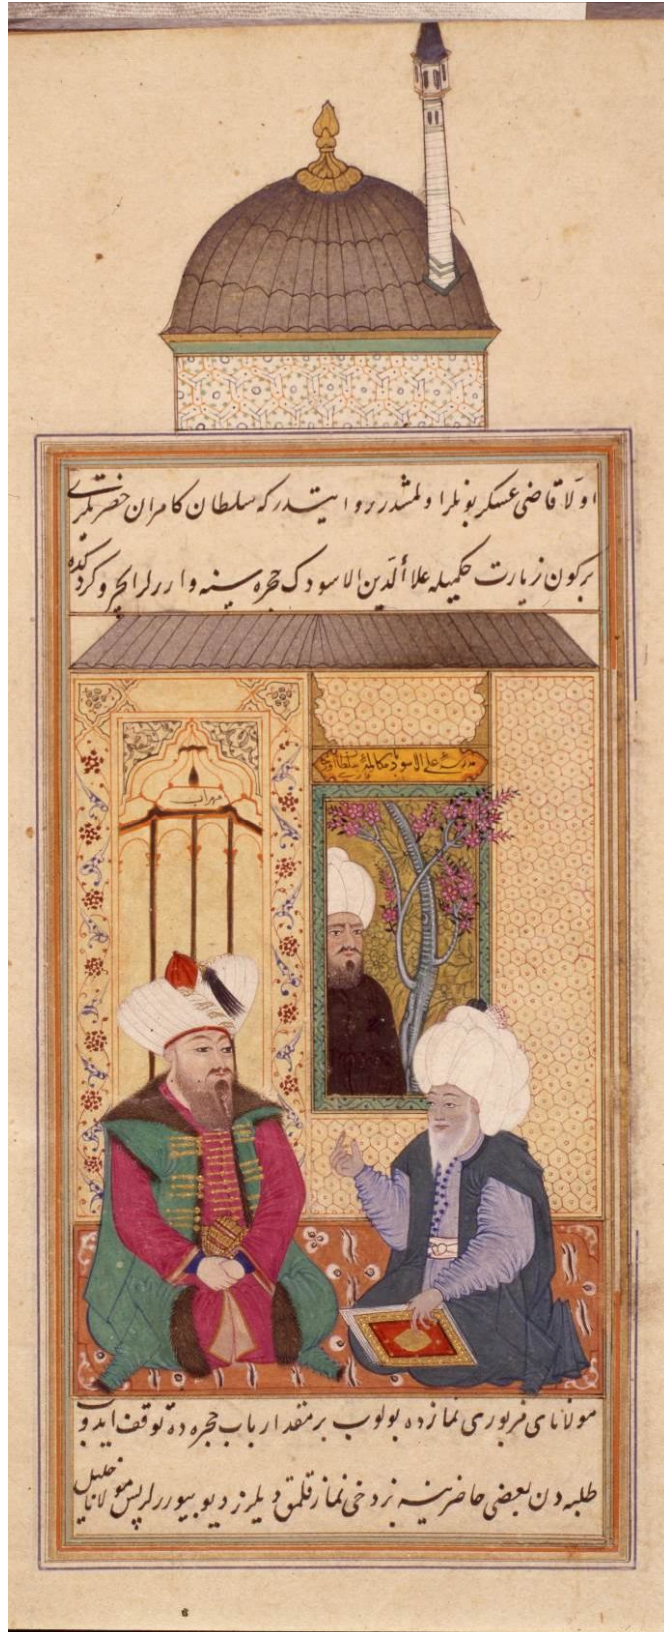 اولا قاضی عسکر بونلر اولمشدر روایتدر که سلطان کامران حضرتلری
بر کون زیارت حکمیله علاألدین الاسودک حجره سینه واررلر
محراب
مولانای مزبوری نمازده بولوب بر مقدار باب حجره ده توقف ایدوب
طلبه دن بعضی حاضرینه بز دخی نماز قلمق دیلرز دیو بیوررلر پس مولانا خلیل